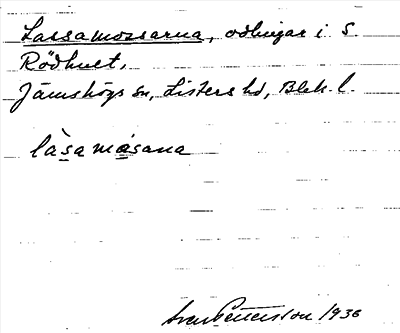 Lassamossarna, odlingar i S.
Rödhult,
Jämshögs sn, Listers hd, Blek. l.
làsamåsana
Sven Pettersson 1936